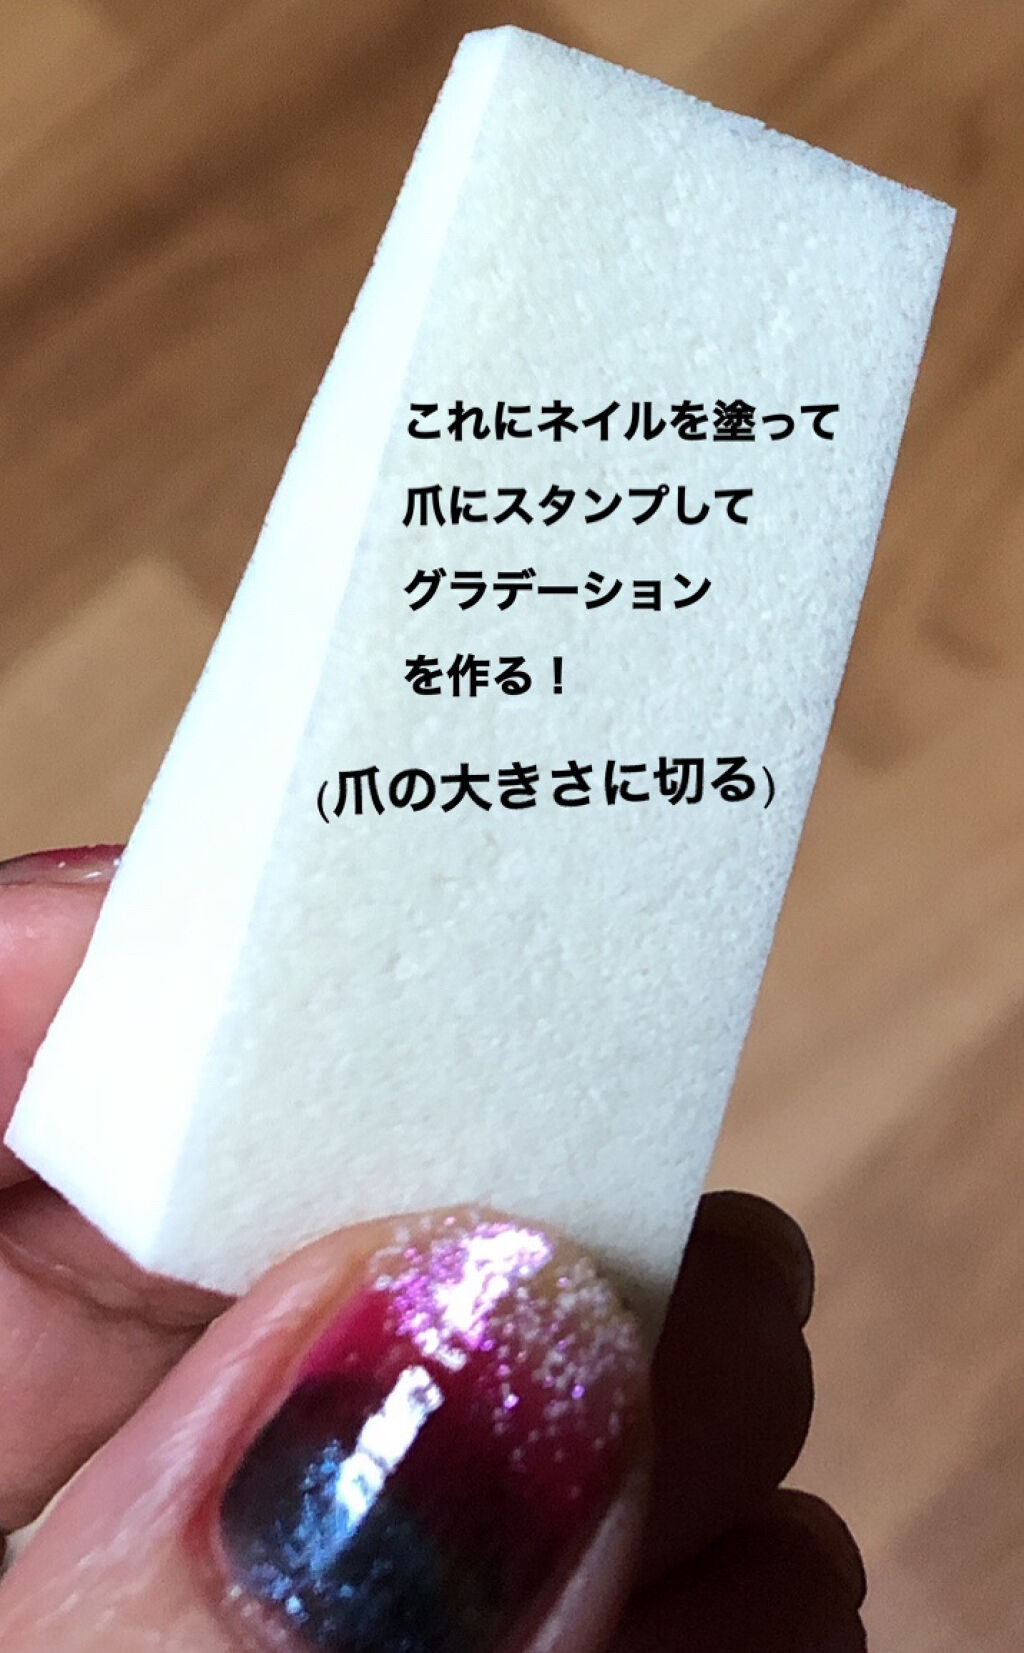 これにネイルを塗って
爪にスタンプして
グラデーション
を作る！
(爪の大きさに切る)